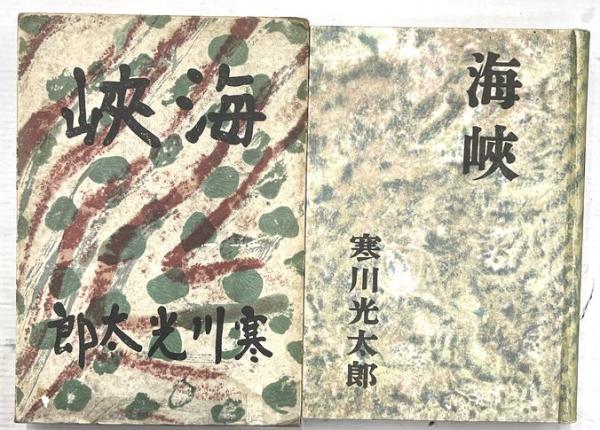 海峽
寒川光太郎
海峽
寒川光太郎